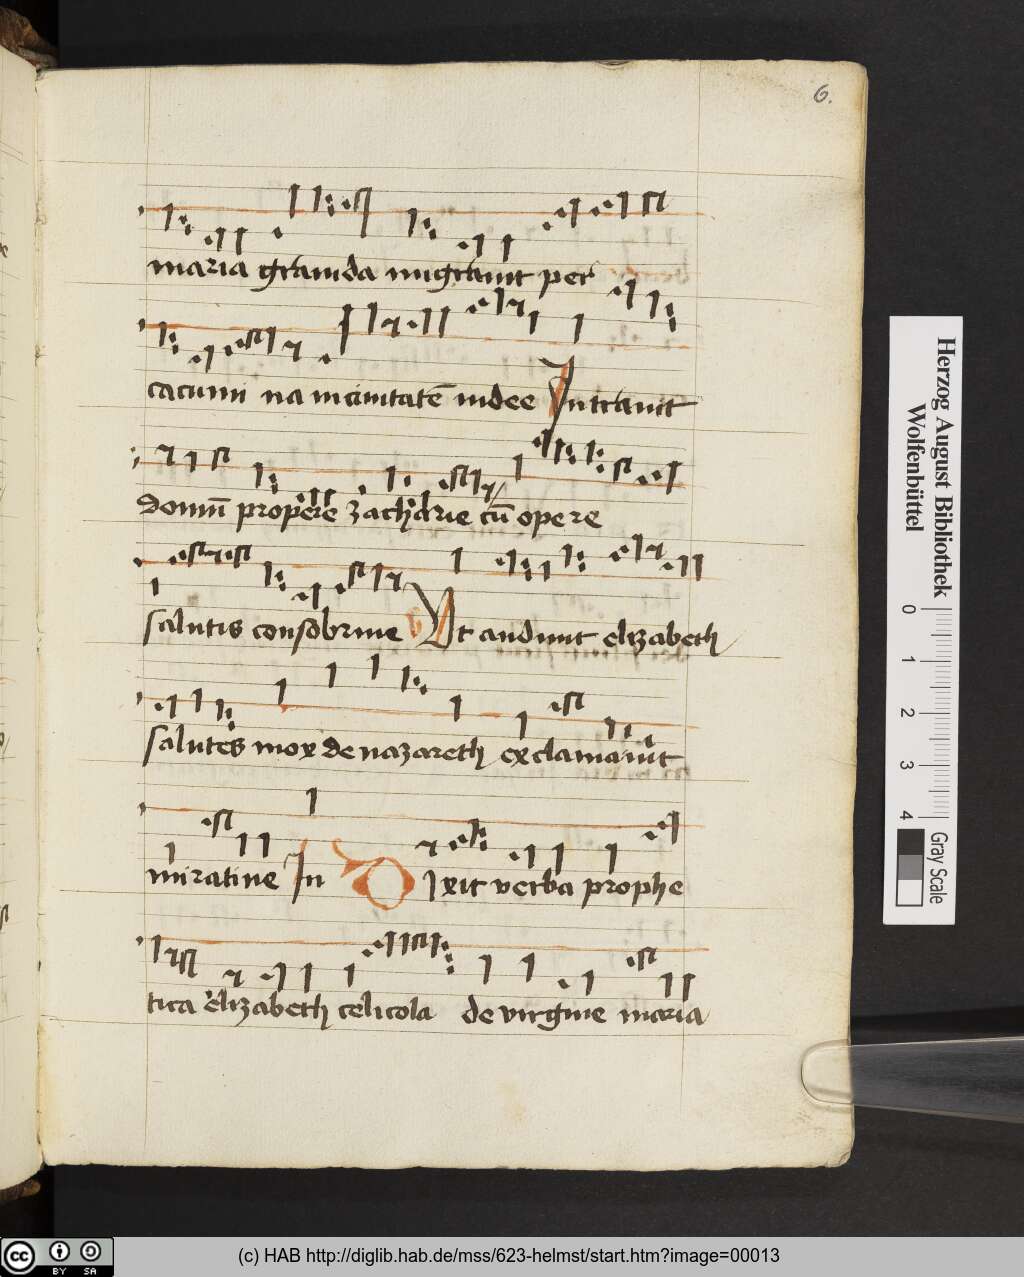 6.
maria grauida migrauit per
cacumi na in ciuitatē iudee Intrauit
domū propere zacharie cū opere
salutis consobrine Vt audiuit elizabeth
salutes mox de nazareth exclamauit
miratiue In Dixit verba prophe
tica elizabeth celicola de virgine maria
Herzog August Bibliothek
Wolfenbüttel
0 1 2 3 4
Gray Scale
cc BY SA
(c) HAB http://diglib.hab.de/mss/623-helmst/start.htm?image=00013